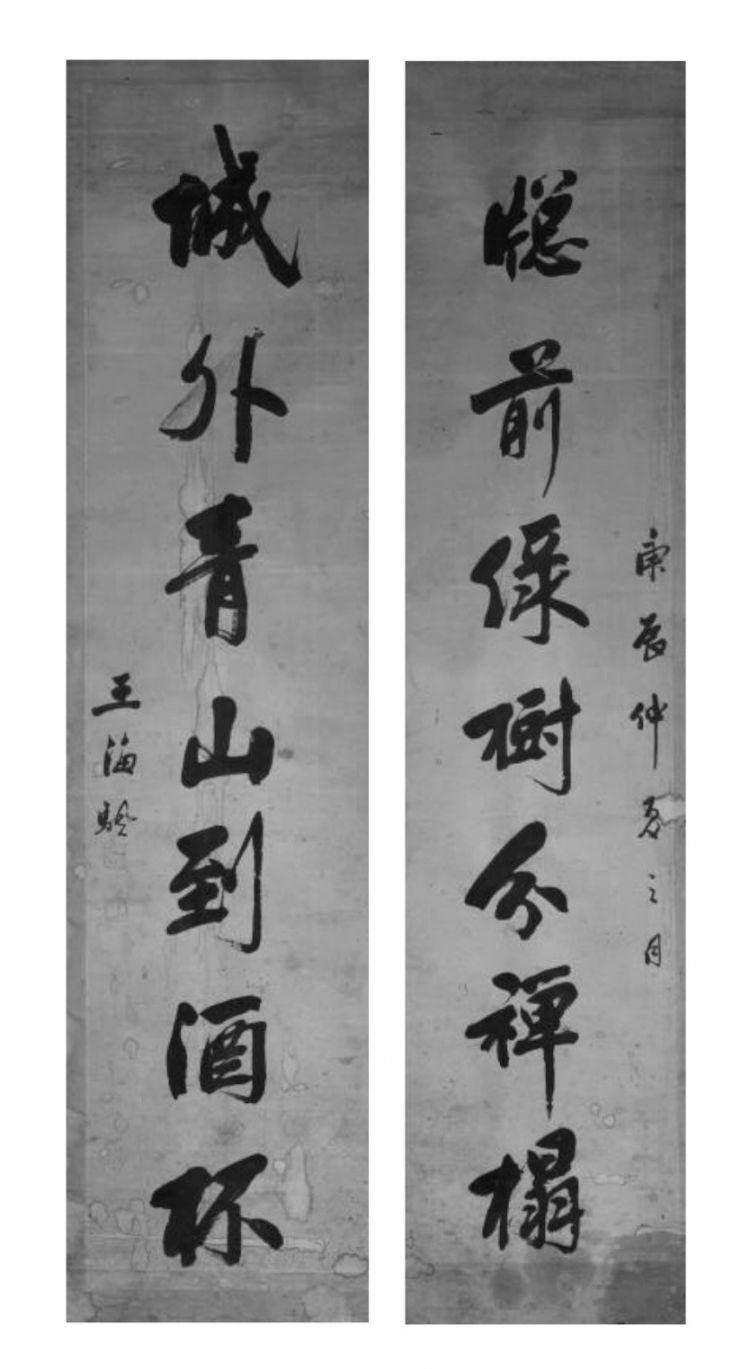 庚辰仲夏之月
牕前綠樹分禪榻
城外青山到酒杯
王海颿